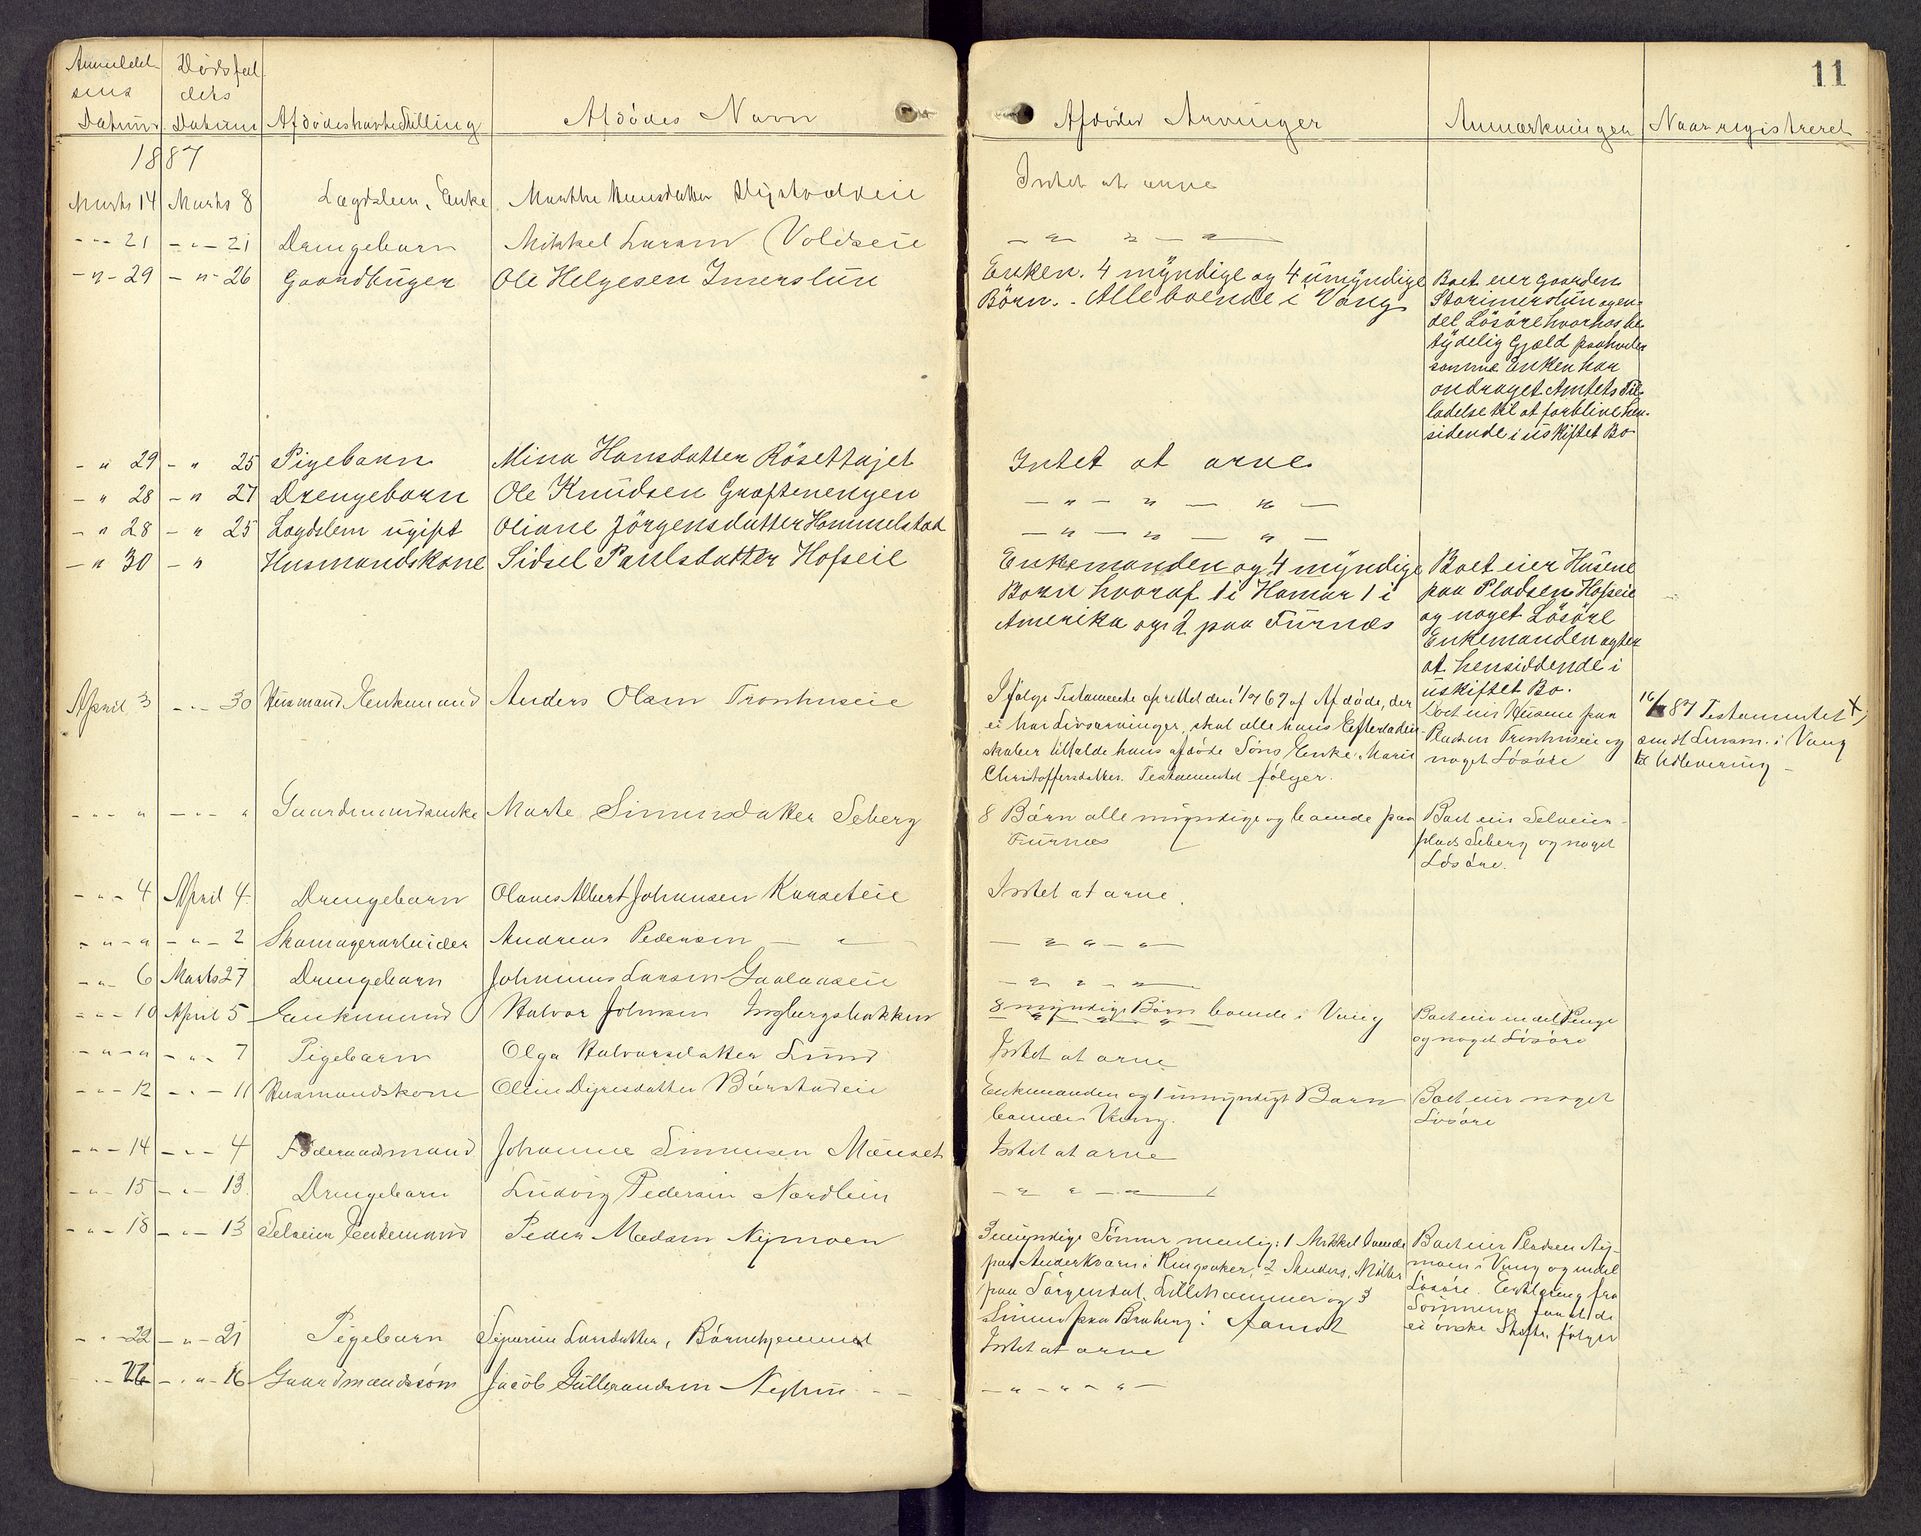 11
Anmeldel- Dødsfal-
sens dets
Datum Datum Afdødes Navn Afdødes Arvinger Anmærkninger Naar registreret
1887
Marts 14 Marts 8 Lægdslem, Enke Marthe Intet at arve
- " - 21 - " - 21 Drengebarn Mikkel Larsen Voldseie - " " - "
- " - 29 - " - 26 Gaardbruger Ole Helgesen Imerslun Enken. 4 myndige og 4 umyndige Boet eier gaarden
Børn. - Alle boende i Vang Storimerslun og en-
del Løsøre hvorhos be-
tydelig Gjæld paahviler
samme Enken har
andraget Amtets Til-
ladelse til at forblive hen-
sidende i uskiftet Bo
- " 29 - " 25 Pigebarn Mina Hansdatter Røsettajet Intet at arve
- " 28 - " 27 Drengebarn Ole Knudsen Grøftenengen - " - " - " -
- " 28 - " 25 Lagdslem ugift Oliane Jørgensdatter Hommelstad - " - " - " -
- " 30 - " Husmandskone Sidsel Paulsdatter Hofseie Enkemanden og 4 myndige Boet eier Husene
Børn hvoraf 1 i Hamar 1 i paa Pladsen Hofseie
Amerika og 2 paa Furnæs og noget Løsøre
Enkemanden agter
at hensiddende i
uskiftet Bo.
April 3 - " - 30 Husmand Enkemand Anders Olsen Tronhuseie Ifølge Testamente oprettet den af Afdøde, der Boet eier Husene paa 87 Testamentet
ei har Livsarvinger, skal alle hans Efterladen- Pladsen Tronhuseie og sendt Lensm. i Vang
skaber tilfalde hans afdøde Søns Enke, Marie noget Løsøre til Udlevering -
Christoffersdatter. Testamentet følger.
- " - " - " - " Gaardmandsenke Marte Simensdatter Seberg 8 Børn alle myndige og boende paa Boet eier Selveier-
Furnæs plads Seberg og noget
Løsøre.
- " - 4 April 4 Drengebarn Olaves Albert Johansen Karseteie Intet at arve.
- " - " - " - 2 Skomagerarbeider Andreas Pedersen - " - - " " - "
- " - 6 Marts 27 Drengebarn Johannes Larsen Gaalaaseie - " " - "
- " - 10 April 5 Enkemand Halvor Johnsen Ingbergsbakken 8 myndige Børn boende i Vang Boet eier en del Penge
og noget Løsøre
- " - " - " - 7 Pigebarn Olga Halvorsdatter Lund Intet at arve
- " - 12 - " - 11 Husmandskone Oline Dyresdatter Børstadeie Enkemanden og 1 umyndigt Barn Boet eier noget
boende i Vang. Løsøre
- " - 14 - " - 4 Føderaadsmand Johannes Simensen Mænset Intet at arve
- " - 15 - " - 13 Drengebarn Ludvig Pedersen Nordlien - " " - "
- " - 18 - " - 13 Selveier Enkemand Peder Madsen Nymoen 3 myndige Sønner nemlig: 1 Mikkel boende Boet eier Pladsen Ny-
paa Anderkværn i Ringsaker, 2 Anders, Møller moen i Vang og endel
paa Sørgendal, Lillehammer og 3 Løsøre. Erklæring fra
Simen paa Braberg i Aamot Sønnerne paa at de
ei ønske Skifte, følger
- " - 22 - " - 21 Pigebarn Larsdatter, Børnehjemmet Intet at arve
- " - 26 - " - 16 Gaardmandssøn Jacob Gulbrandsen - " - " - " -